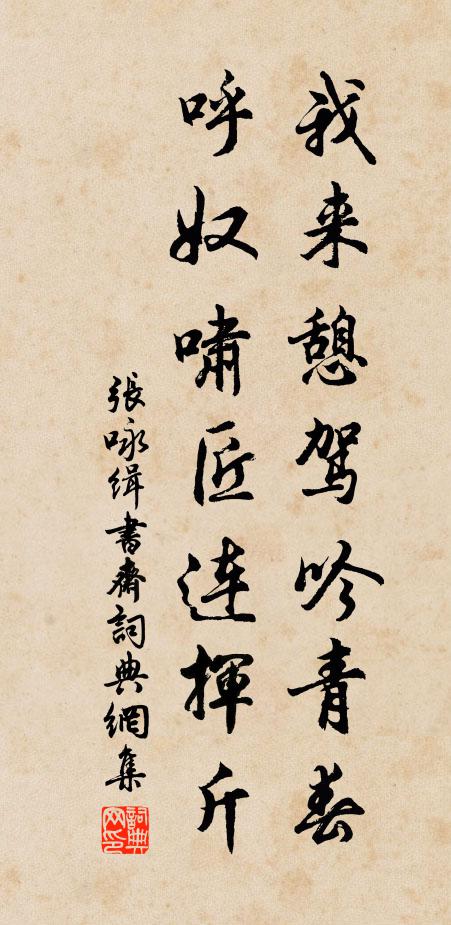 我来憩驾吟青春
呼奴啸匠连挥斤
張咏缉書齋詞典網集
詞典网印